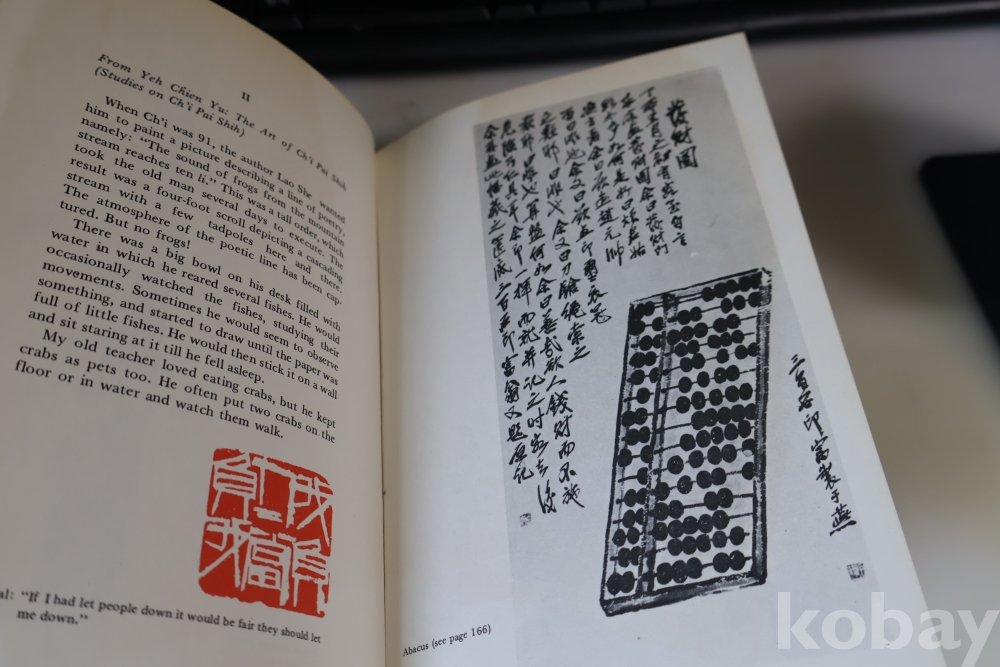 II
From Yeh Chien Yu: The Art of Ch'i Pai Shih
(Studies on Ch'i Pai Shih)
When Ch'i was 91, the author Lao She wanted
him to paint a picture describing a line of poetry,
namely: "The sound of frogs from the mountain
stream reaches ten li." This was a tall order, which
took the old man several days to execute. The
result was a four-foot scroll depicting a cascading
stream with a few tadpoles here and there.
The atmosphere of the poetic line has been cap-
tured. But no frogs!
There was a big bowl on his desk filled with
water in which he reared several fishes. He would
occasionally watched the fishes, studying their
movements. Sometimes he would seem to observe
something, and started to draw until the paper was
full of little fishes. He would then stick it on a wall
and sit staring at it till he fell asleep.
My old teacher loved eating crabs, but he kept
crabs as pets too. He often put two crabs on the
floor or in water and watch them walk.
al: "If I had let people down it would be fair they should let
me down."
發財圖
丁卯五月之初有客至自言
求余畫發財圖余曰發財門
路太多如何是好曰煩君姑
妄言著余曰欲畫趙元帥
否曰非也余又曰欲畫印璽衣冠
之類耶曰非也余又曰刀鎗繩索之
類耶曰非也算盤何如余曰善哉欲人錢財而不施
危險乃仁具耳余即一揮而就并記之時客去後
余再畫此幅藏之篋底三百石印富翁又題原記
三百石印富製于燕
Abacus (see page 166)
kobay